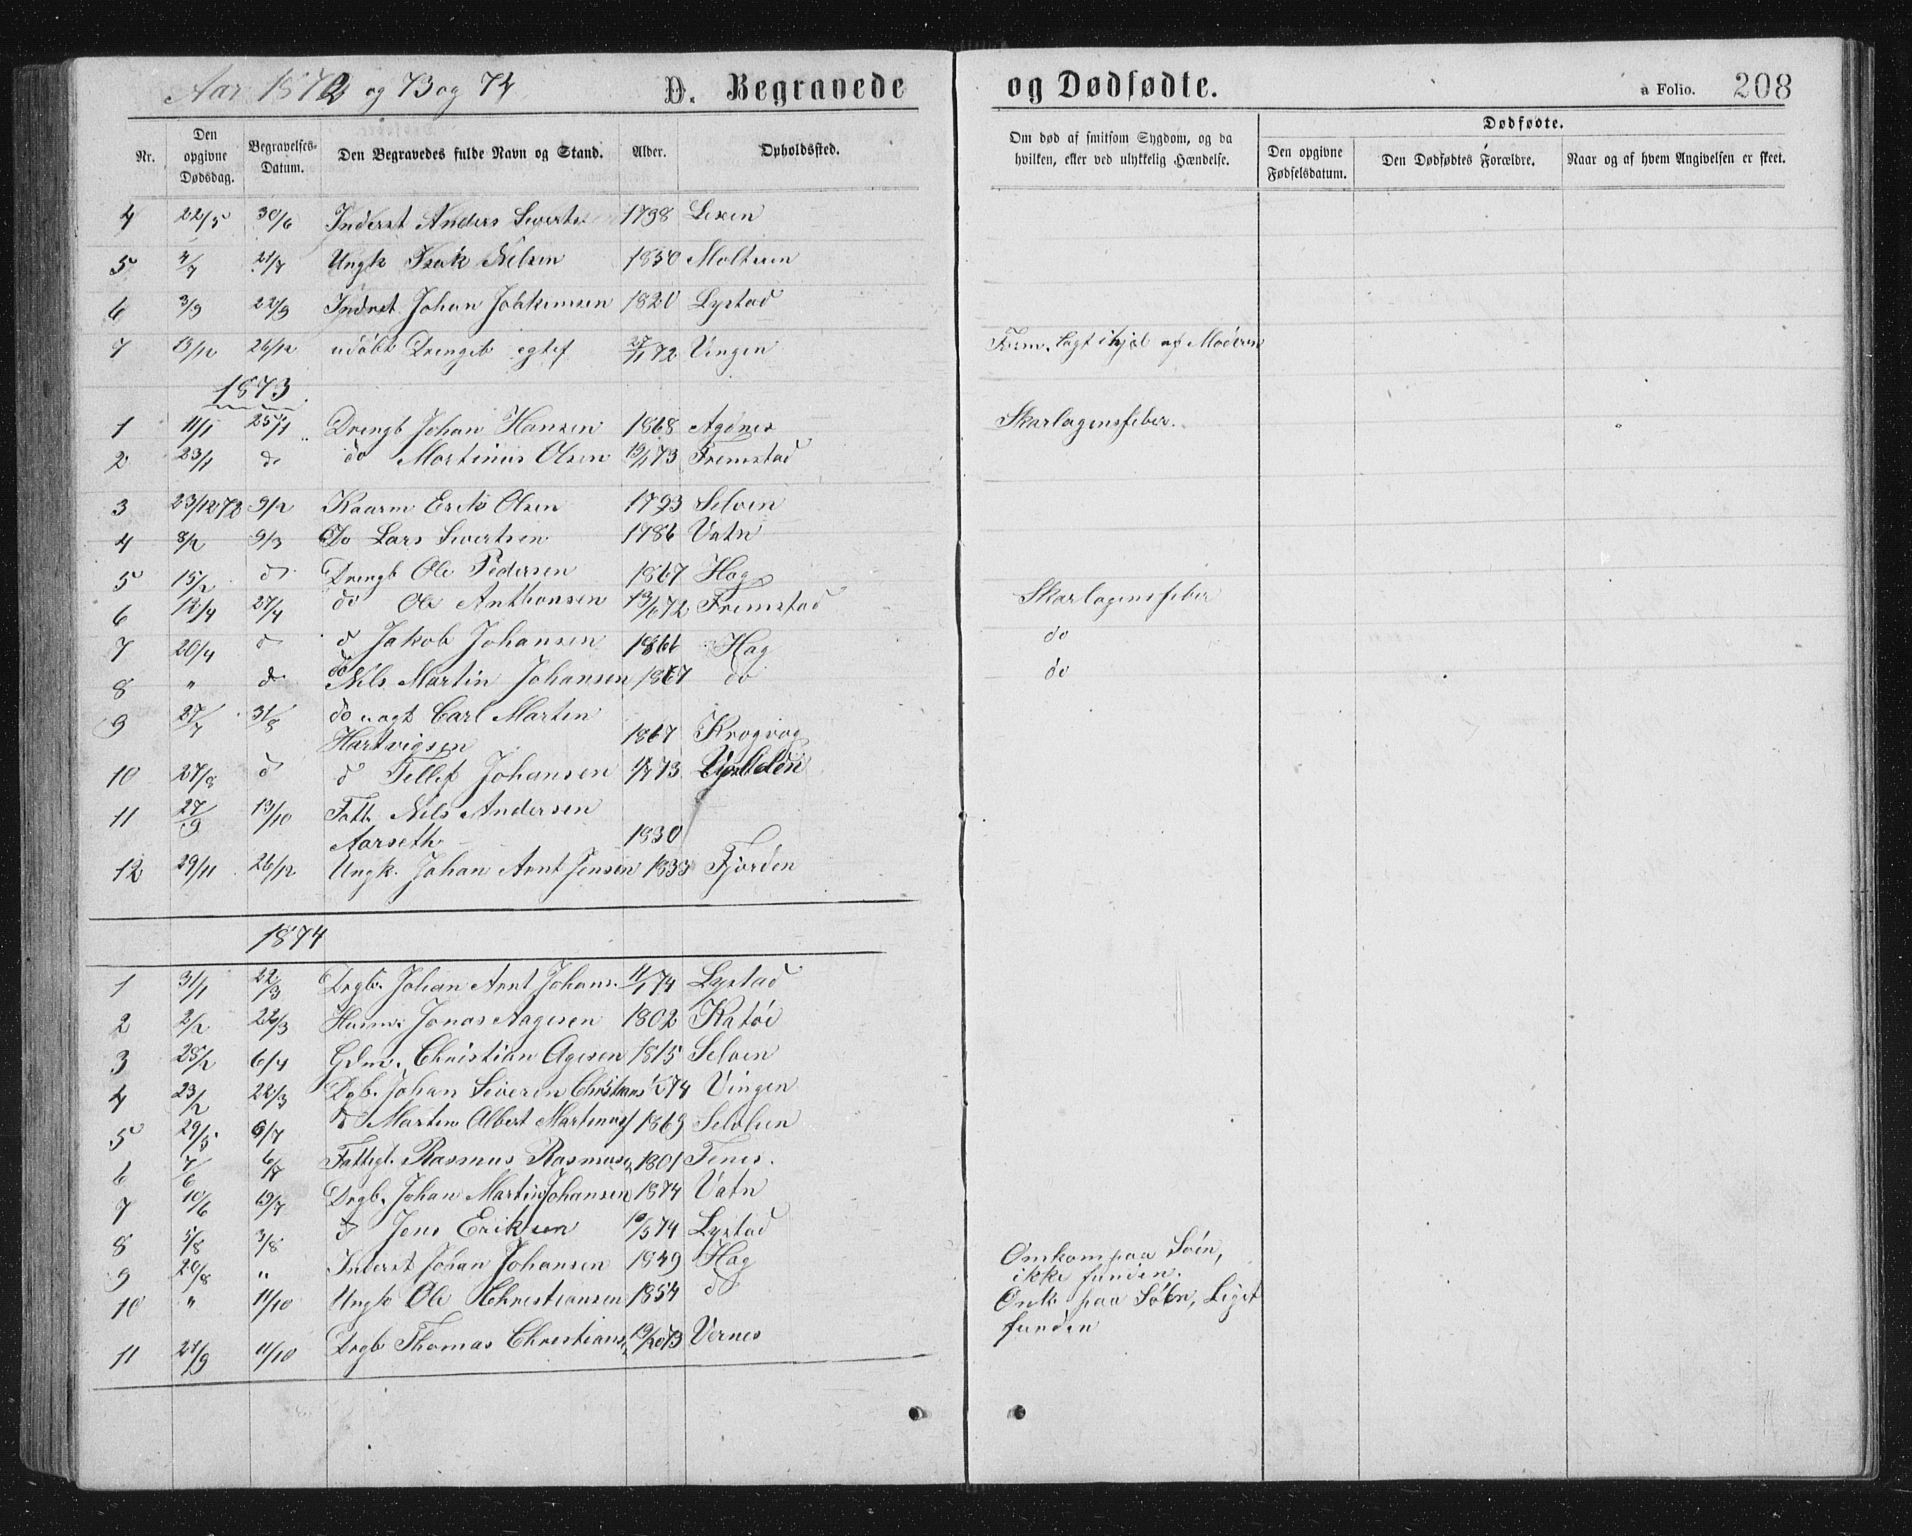 Aar 1872 og 73 og 74
D. Begravede og Dødfødte. a Folio. 208
Nr. Den opgivne Dødsdag. Begravelses-Datum. Den Begravedes fulde Navn og Stand. Alder. Opholdssted. Om død af smitsom Sygdom, og da hvilken, eller ved ulykkelig Hændelse. Dødfødte. Den opgivne Fødselsdatum. Den Dødfødtes Forældre. Naar og af hvem Angivelsen er skeet.
4 22/5 30/6 Inderst Anders Siverts. 1798 Lexen
5 4/7 21/7 Ungk Isak Nilsen 1850 Moltzen
6 3/9 22/9 Inderst Johan Joakimsen 1820 Lystad
7 13/12 26/12 udøbt Drengeb egtef 27/11 72 Vingen Form. lagt ihjel af Moderen
1873
1 11/1 25/1 Drengb Johan Hansen 1868 Agdnes Skarlagensfeber.
2 23/1 do do Martinus Olsen 19/1 73 Fremstad
3 23/12 72 9/2 Kaarm Erik Olsen 1793 Selven
4 8/2 9/3 Do Lars Sivertsen 1786 Vatn
5 15/2 d Drengb Ole Pedersen 1867 Hag
6 12/4 27/4 do Ole Anthonsen 13/10 72 Fremstad Skarlagensfeber
7 20/4 d d Jakob Johansen 1866 Hag do
8 " d do Nils Martin Johansen 1867 do do
9 27/7 31/8 do uagt Carl Martin
Hartvigsen 1867 Krogvag
10 27/8 d d Tellef Johansen 1/7 73
11 27/9 13/10 Fatt. Nils Andersen
Aarseth 1830
12 29/11 26/12 Ungk. Johan Arnt Jensen 1833 Fjorden
1874
1 31/1 22/3 Drgb. Johan Arnt Johans. 11/1 74 Lystad
2 2/2 22/3 Husm. Jonas Aagesen 1802 Ratøe
3 25/2 6/4 Gdm. Christian Agesen 1815 Selven
4 23/2 22/3 Dgb. Johan Siverin Christians 74 Vingen
5 29/5 6/7 d Martin Albert Martinus 1869
6 7/6 6/7 Fattigl. Rasmus Rasmusen 1801
7 10/6 19/7 Drgb. Johan Martin Johansen 1874 Vatn
8 5/8 3/8 d Jens Eriksen 10/5 74 Lystad
9 20/8 " Inderst Johan Johansen 1849 Hag Omkom paa Søen,
ikke funden.
10 " 11/10 Ungk Ole Christiansen 1854 d Omk paa Søen, Liget
funden
11 21/9 11/10 Drgb Thomas Christians. 19/10 73 Vernes